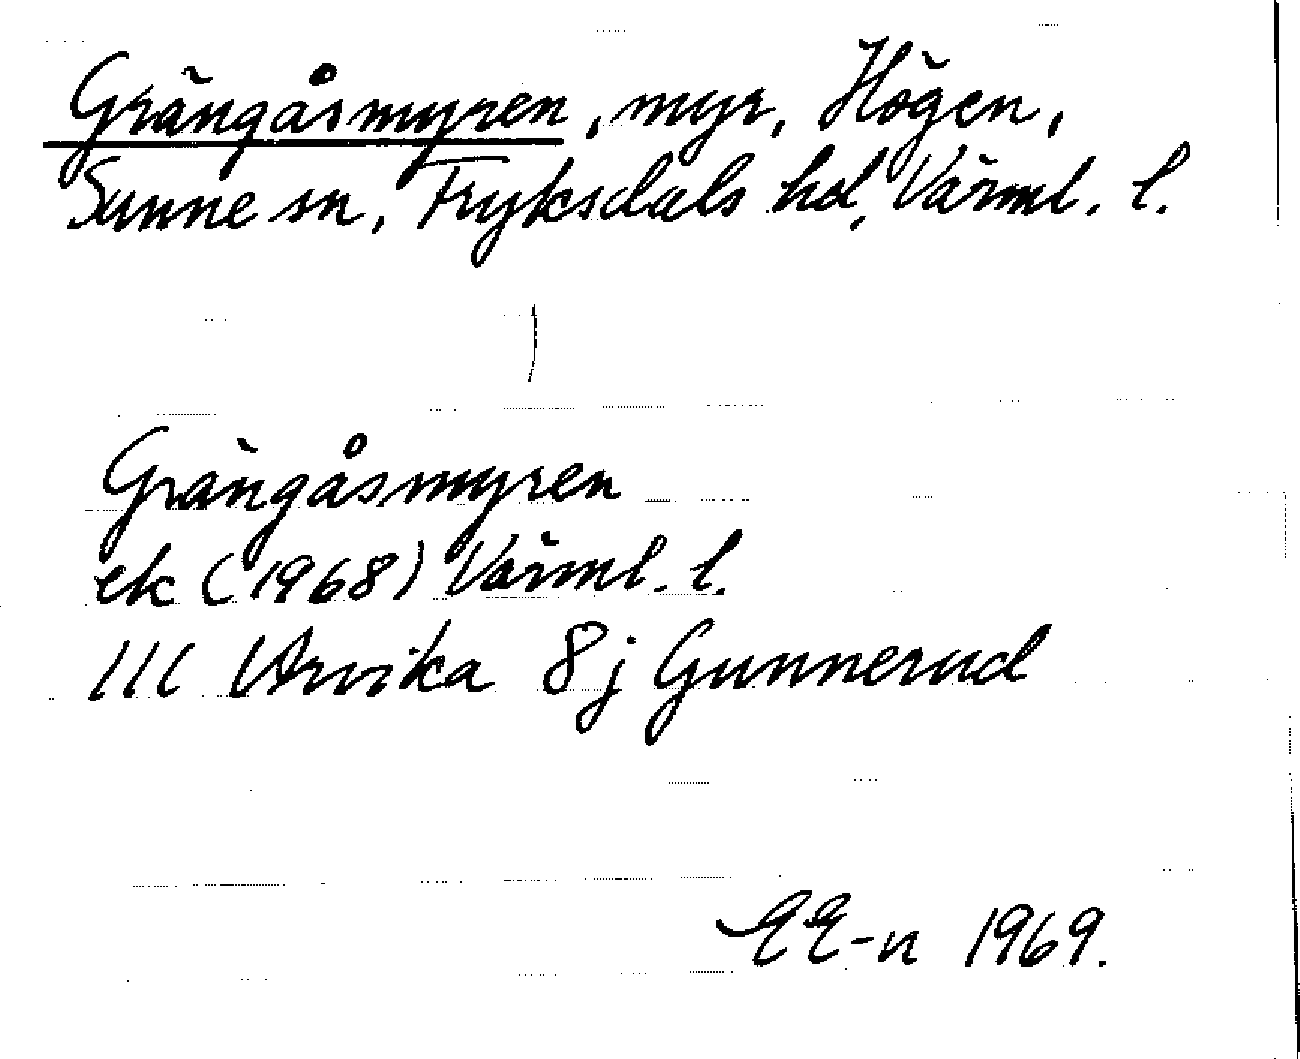 Grängåsmyren, myr, Högen,
Sunne sn, Fryksdals hd, Värml. l.
Grängåsmyren
ek (1968) Värml. l.
11C Arvika 8j Gunnerud
EE-n 1969.